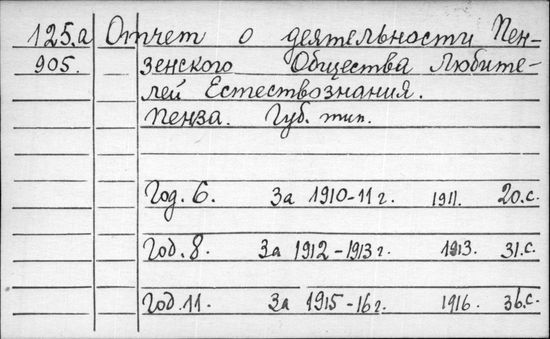 125.а Отчет о деятельности Пен-
905. зенского Общества Любите-
лей Естествознания.
Пенза. Губ. тип.
Год. 6. За 1910-11 г. 1911. 20.с.
Год. 8. За 1912-1913 г. 1913. 31.с.
Год. 11. За 1915-16 г. 1916. 36.с.